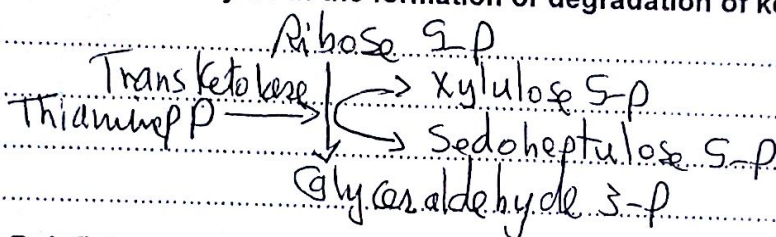 the formation or degradation of ke
Ribose 5-p
Transketolase
→ Xylulose 5-p
Thiamine p p →
→ Sedoheptulose 5-p
Glyceraldehyde 3-p